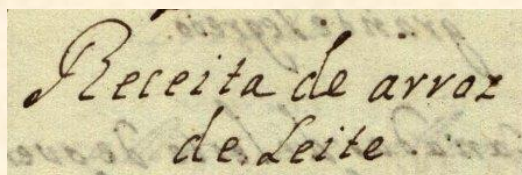 Receita de arroz
de Leite.